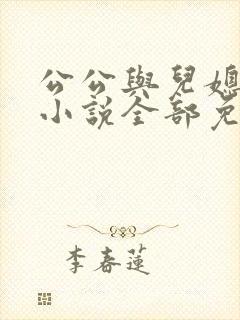 公公與兒媳
小說全部免
李春蓮